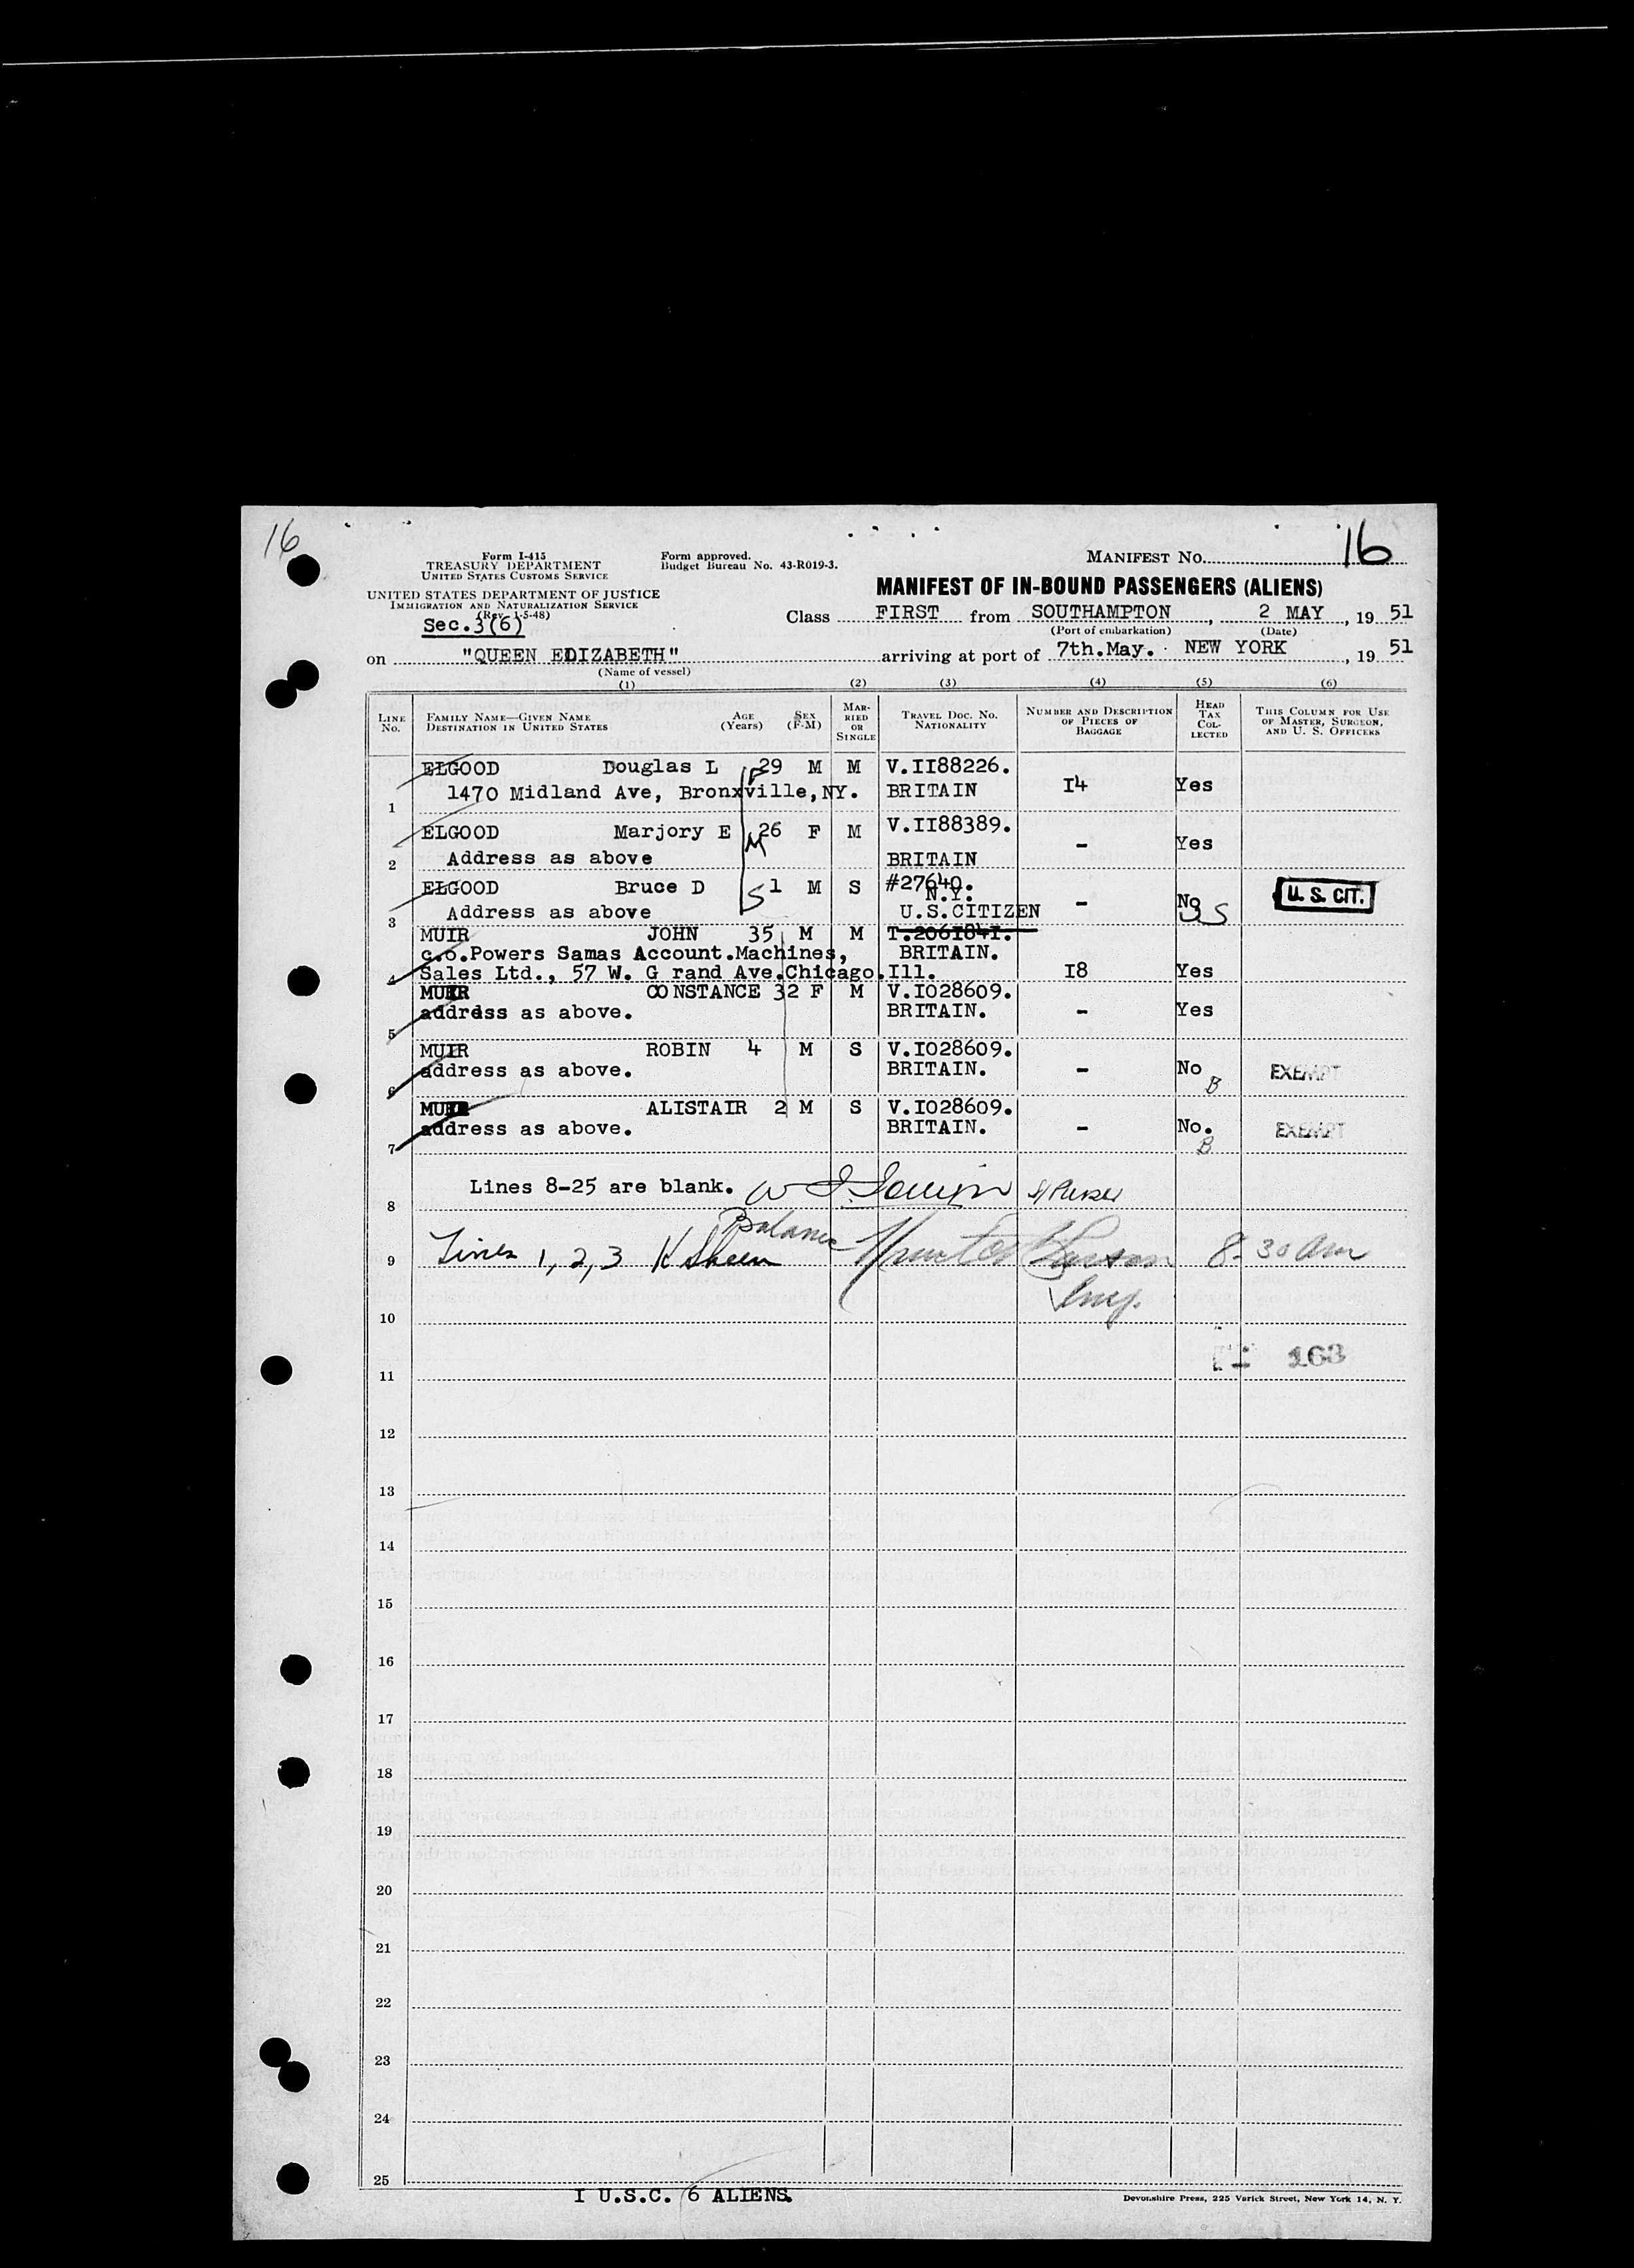 16
16
Form I-415
TREASURY DEPARTMENT
UNITED STATES CUSTOMS SERVICE
UNITED STATES DEPARTMENT OF JUSTICE
IMMIGRATION AND NATURALIZATION SERVICE
(Rev. 1-5-48)
Sec.3(6)
Form approved.
Budget Bureau No. 43-R019-3.
MANIFEST No.
MANIFEST OF IN-BOUND PASSENGERS (ALIENS)
Class FIRST from SOUTHAMPTON, 2 MAY, 19 51
(Port of embarkation) (Date)
on "QUEEN ELIZABETH" arriving at port of 7th.May. NEW YORK, 19 51
(Name of vessel)
(1) (2) (3) (4) (5) (6)
LINE No. FAMILY NAME—GIVEN NAME DESTINATION IN UNITED STATES AGE (Years) SEX (F-M) MARRIED OR SINGLE TRAVEL DOC. NO. NATIONALITY NUMBER AND DESCRIPTION OF PIECES OF BAGGAGE HEAD TAX COLLECTED THIS COLUMN FOR USE OF MASTER, SURGEON, AND U. S. OFFICERS
ELGOOD Douglas L 29 M M V.II88226.
1 1470 Midland Ave, Bronxville,NY. BRITAIN I4 Yes
ELGOOD Marjory E 26 F M V.II88389.
M
2 Address as above BRITAIN - Yes
ELGOOD Bruce D S 1 M S #27640.
N.Y.
3 Address as above U.S.CITIZEN - No U. S. CIT.
MUIR JOHN 35 M M T.206I84I.
c.o.Powers Samas Account.Machines, BRITAIN.
4 Sales Ltd., 57 W. G rand Ave.Chicago.Ill. I8 Yes
MUIR CONSTANCE 32 F M V.I028609.
5 address as above. BRITAIN. - Yes
MUIR ROBIN 4 M S V.I028609.
6 address as above. BRITAIN. - No B EXEMPT
MUIR ALISTAIR 2 M S V.I028609.
7 address as above. BRITAIN. - No. B EXEMPT
8 Lines 8-25 are blank.
Balance
9 Lines 1, 2, 3 K Sheen 8-30 am
10
163
11
12
13
14
15
16
17
18
19
20
21
22
23
24
25
I U.S.C. 6 ALIENS.
Devonshire Press, 225 Varick Street, New York 14, N. Y.